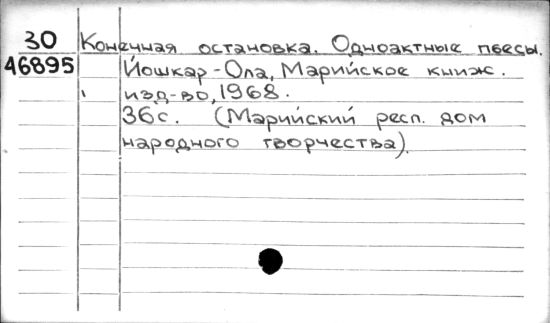 30 Конечная остановка. Одноактные пьесы.
46895 Йошкар-Ола, Марийское книж.
изд-во, 1968.
36с. (Марийский респ. дом
народного творчества).